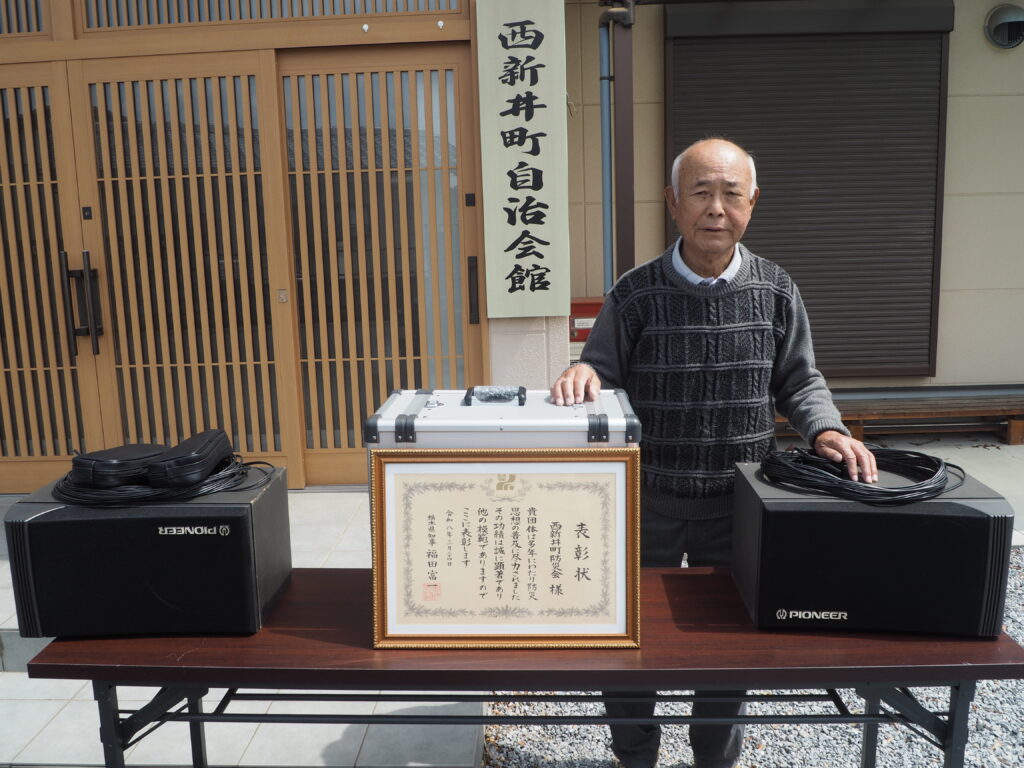 西新井町自治会館
表彰状
西新井町防災会 様
貴団体は多年にわたり防災
思想の普及に尽力されました
その功績は誠に顕著であり
他の模範でありますので
ここに表彰します
令和八年三月
栃木県知事 福田富一
PIONEER
PIONEER